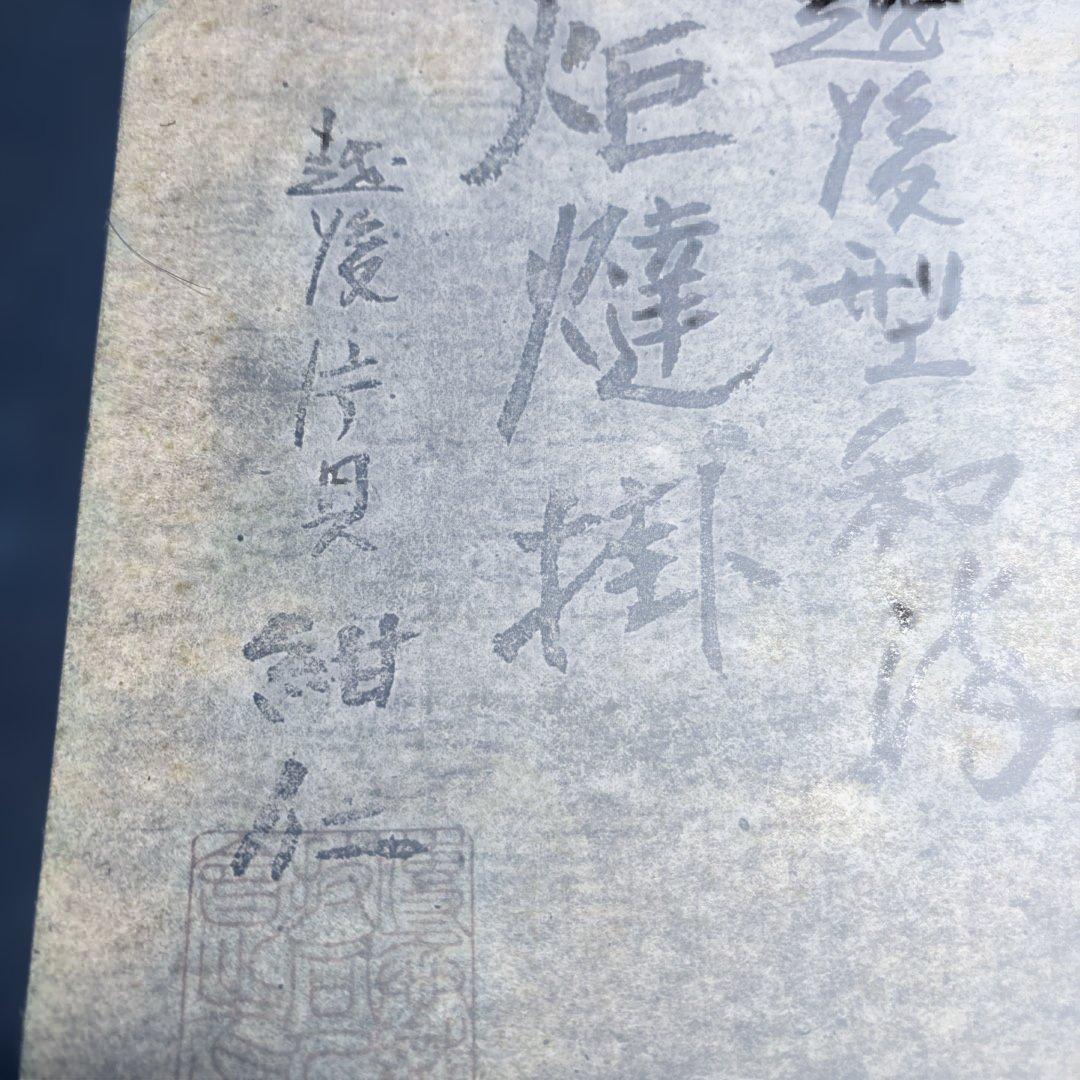 越後型和
炬燵掛
越後片貝 紺仁